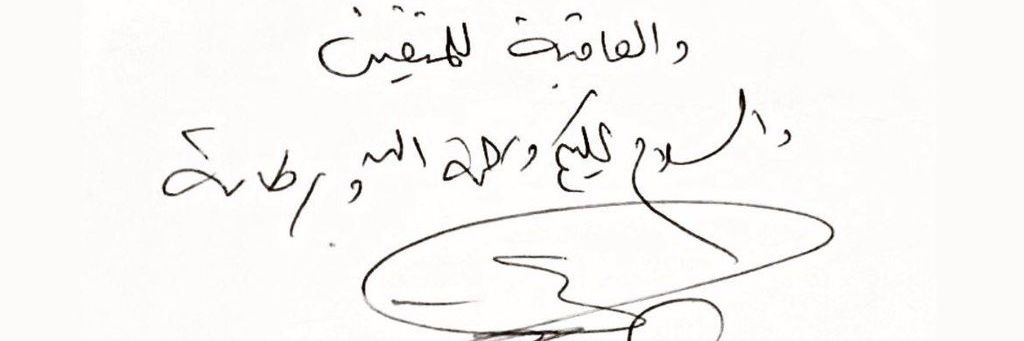 والعاقبة للمتقين
والسلام عليكم ورحمة الله وبركاته